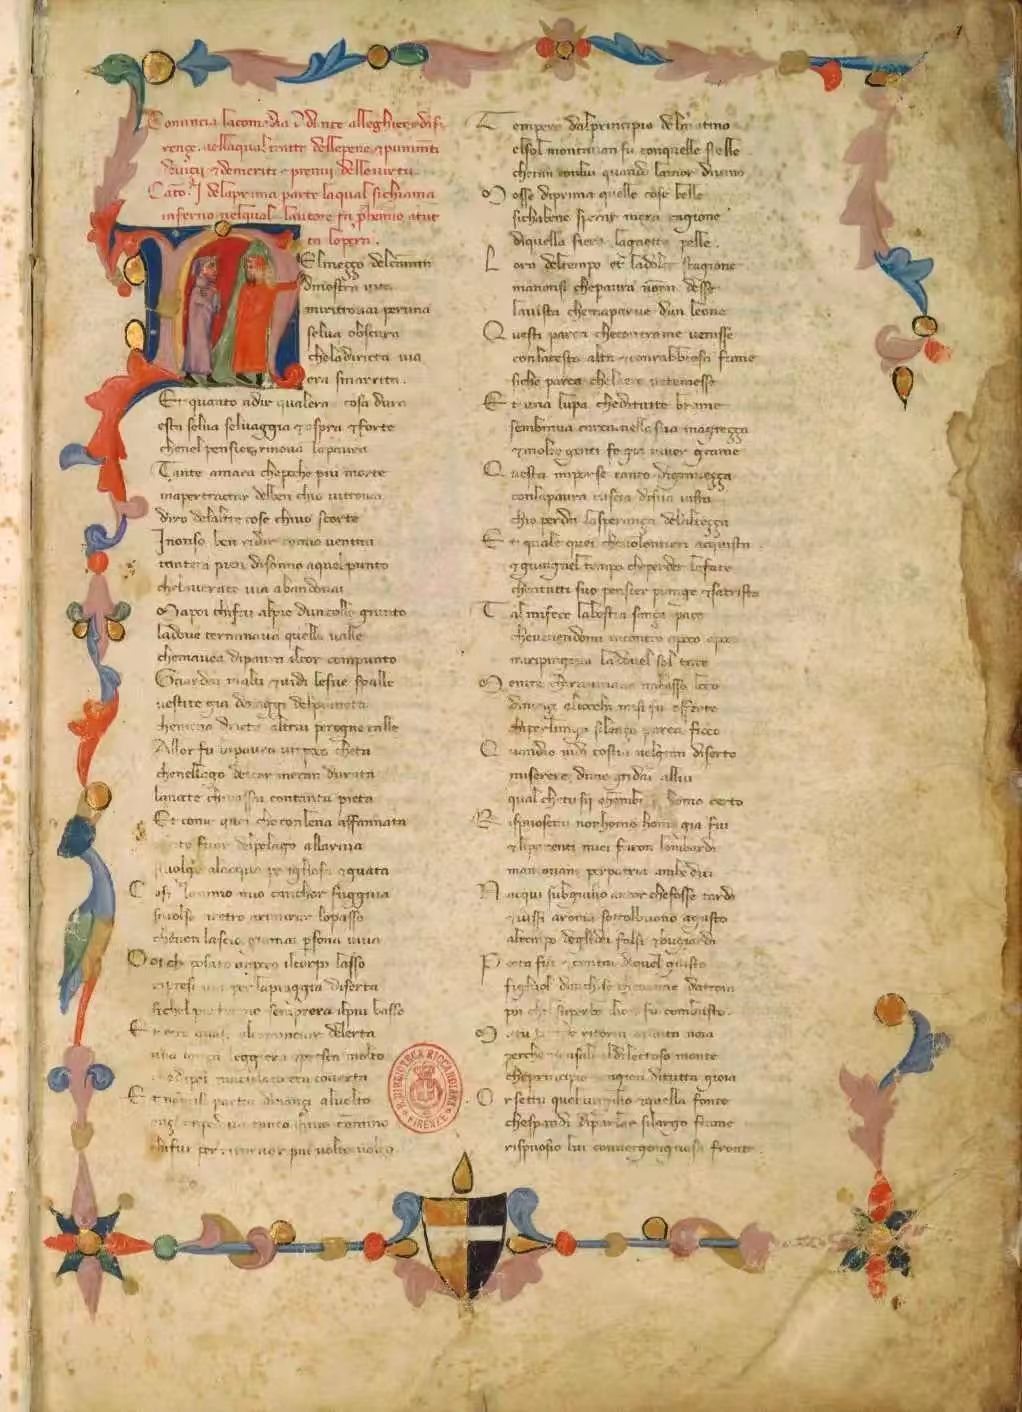 lacomedia
nellaqual tratta dellepene et punimti
de viçii et demeriti et premii delle virtu
dela prima parte laqual sichiama
inferno nelqual lautore fa
lopera.
El meçço del
dinostra vita
miritrovai peruna
selva obscura
cheladiricta via
era smarrita.
Et quanto adir qualera cosa dura
esta selva selvaggia et aspra et forte
chenel pensier rinova lapaura
Tante amara chepocho piu morte
mapertractar delben chio vitrovai
diro delaltre cose chivo scorte
Inonso ben ridir comio ventrai
tantera pien disonno aquel punto
chelverace via abandonai
Mapoi chifui alpie duncolle giunto
ladove terminava quella valle
chemavea dipaura ilcor compunto
Guardai inalti et vidi lesue spalle
vestite gia deraggi delpianeta
chemena dricto altrui perogne calle
Allor fu lapaura un poco cheta
chenellago delcor mera durata
lanocte chipassai contanta pieta
Et come quei checonlena affannata
fuor delpelago allariva
alacqua et guata
Cosi lanimo mio canchor fuggiva
sivolse retro arimirar lopasso
chenon lascio giamai persona viva
Poi ch ilcorpo lasso
ripresi via perlapiaggia diserta
sichel pie fermo semprera ilpiu basso
Et ecco quasi alcominciar delerta
una lonça leggera et presta molto
chedipel maculato era coverta
Et nonmisi partia dinançi alvolto
ançi tanto ilmio camino
chifui per ritornar piu volte volto
Tempera dalprincipio delmatino
elsol montavan su conquelle stelle
cheran conlui quando lamor divino
Mosse diprima quelle cose belle
sichabene sperar mera cagione
diquella fiera lagaetta pelle
Lora deltempo et ladolce stagione
manonsi chepaura non mi desse
lavista chemaparve dun leone
Questi parea checontrame venisse
conlatesta alta et conrabbiosa fame
siche parea chelaere ne temesse
Et una lupa cheditutte brame
sembiava carca nella sua magreçça
et molte genti fe gia viver grame
Questa miporse tanto digraveçça
conlapaura cuscia disua vista
chio perdei lasperança delalteçça
Et quale quei chevolontieri acquista
et giungnel tempo cheperder loface
chentutti suoi pensier piange et sattrista
Tal mifece labestia sença pace
chevenendomi incontro apoco apoco
miripingeva ladovel sol tace
Mentre chirovinava inbasso loco
dinançi aliocchi misi fu offerto
chiperlungo silençio parea fioco
Quandio vidi costui nelgran diserto
miserere dime gridai allui
qual chetu sii ombra o homo certo
Rispuosemi nonhomo homo gia fui
et liparenti miei furon lombardi
mantovani perpatria ambedui
Nacqui subgiulio anchor chefosse tardi
et vissi aroma sottolbuono agusto
altempo deglidei falsi et bugiardi
Poeta fui et cantai diquel giusto
figliuol danchise chevenne datroia
poi chel superbo ilion fu combusto.
Ma tu perche ritorni atanta noia
perche nonsali aldilectoso monte
cheprincipio et cagion ditutta gioia
Or settu quel virgilio et quella fonte
chespandi diparlar silargo fiume
rispuosio lui convergongnosa fronte
BIBLIOTECA RICCARDIANA
FIRENZE